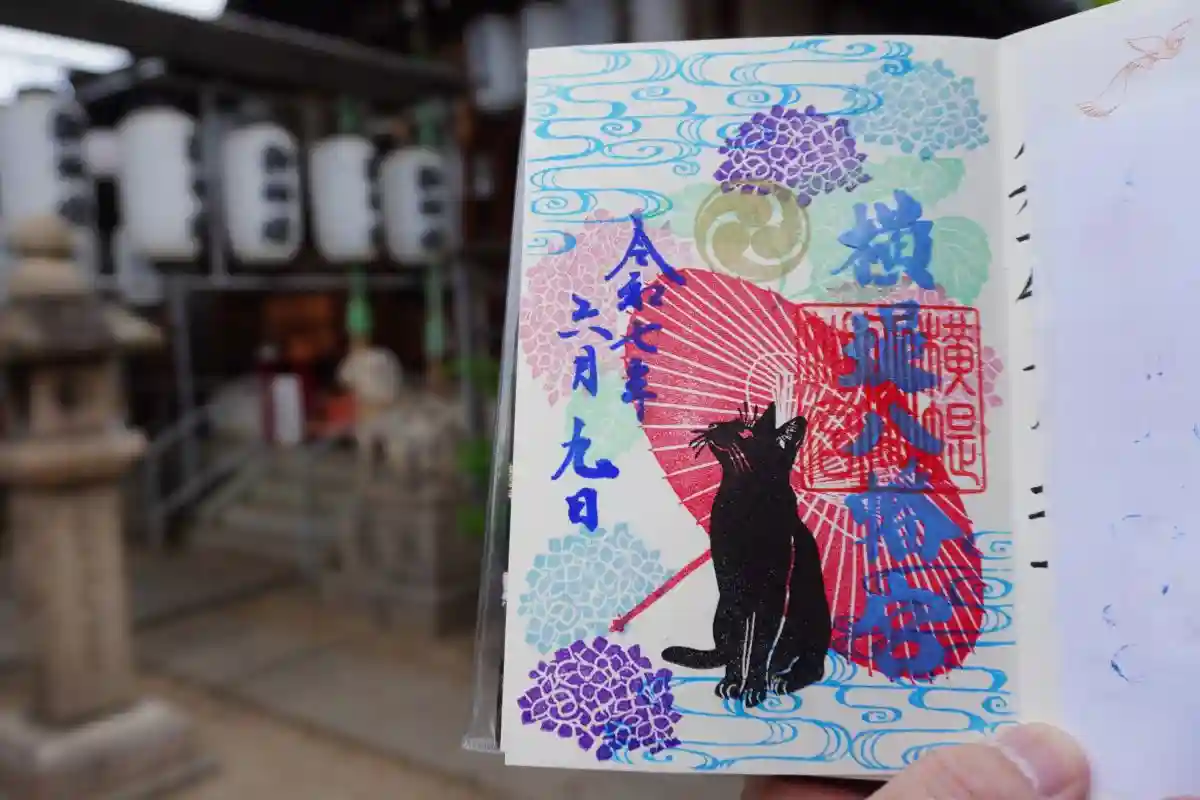 横堤八幡宮
令和七年
六月九日